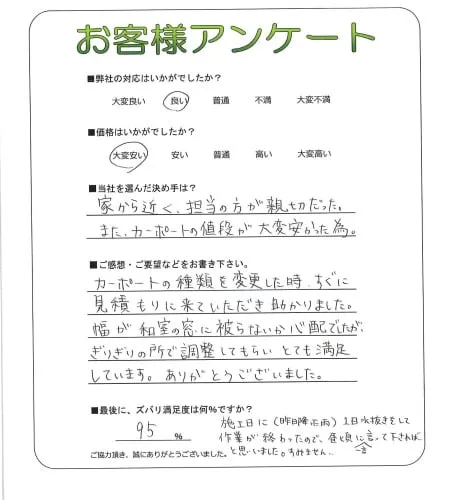 お客様アンケート
■弊社の対応はいかがでしたか？
大変良い 良い 普通 不満 大変不満
■価格はいかがでしたか？
大変安い 安い 普通 高い 大変高い
■当社を選んだ決め手は？
家から近く、担当の方が親切だった。
また、カーポートの値段が大変安かった為。
■ご感想・ご要望などをお書き下さい。
カーポートの種類を変更した時、すぐに
見積もりに来ていただき助かりました。
幅が和室の窓に被らないか心配でしたが、
ぎりぎりの所で調整してもらいとても満足
しています。ありがとうございました。
■最後に、ズバリ満足度は何%ですか？
95 %
施工日に（昨日降雨）1日水抜きをして
作業が終わったので、昼頃に一言言って下されば
と思いました。すみません…
ご協力頂き、誠にありがとうございました。